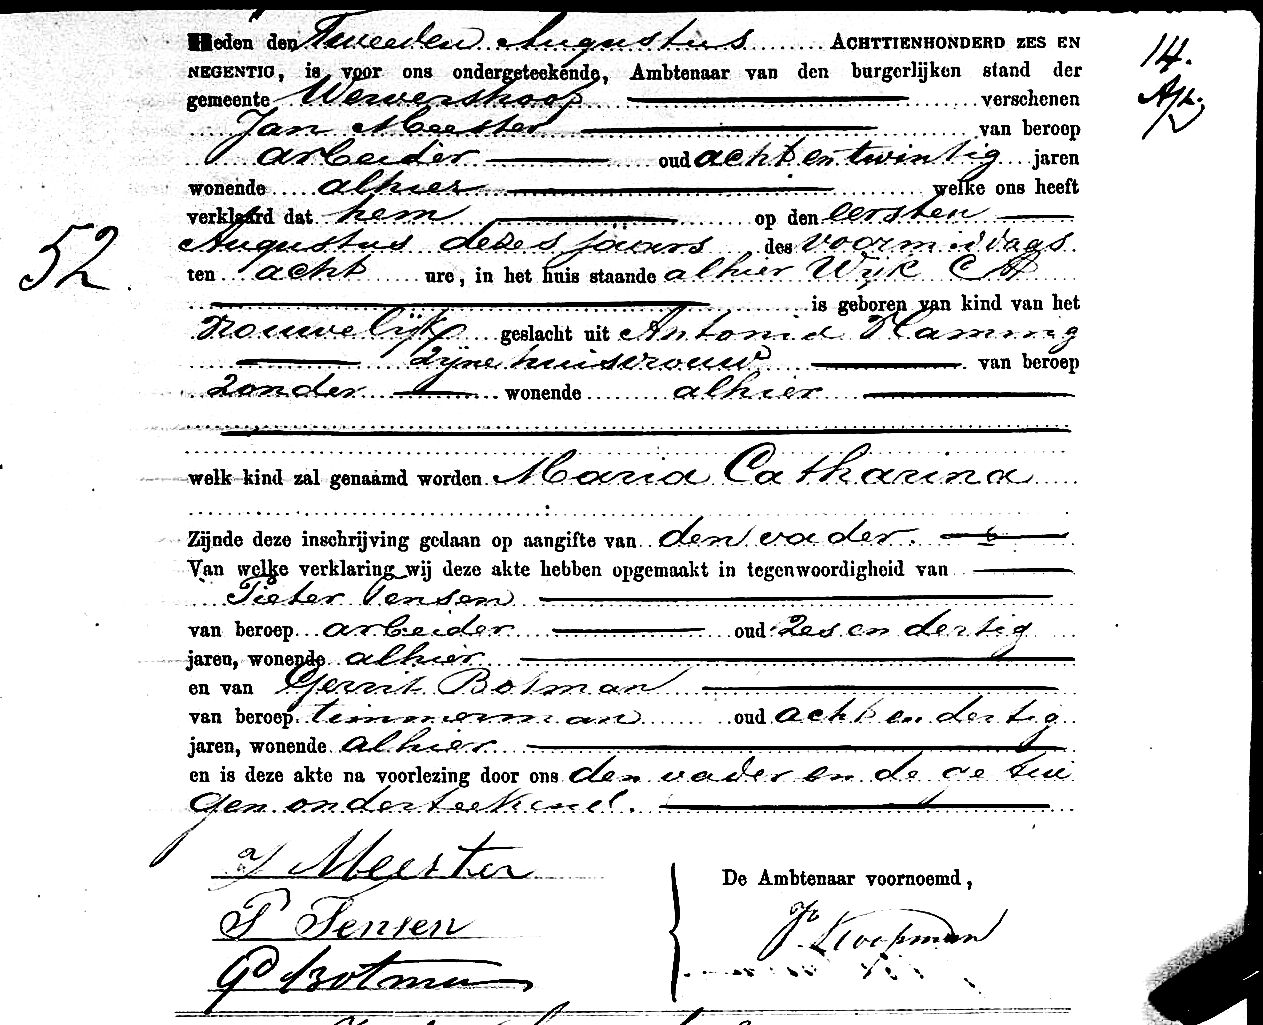 Heden den Tweeden Augustus ACHTTIENHONDERD ZES EN
NEGENTIG, is voor ons ondergeteekende, Ambtenaar van den burgerlijken stand der
gemeente Wervershoof verschenen
Jan Meester van beroep
arbeider oud acht en twintig jaren
wonende alhier welke ons heeft
verklaard dat hem op den eersten
Augustus dezes jaars des voormiddags
ten acht ure, in het huis staande alhier Wijk C
is geboren van kind van het
vrouwelijk geslacht uit Antonia Haming
zijne huisvrouw van beroep
zonder wonende alhier
welk kind zal genaamd worden Maria Catharina
Zijnde deze inschrijving gedaan op aangifte van den vader.
Van welke verklaring wij deze akte hebben opgemaakt in tegenwoordigheid van
Pieter Tensen
van beroep arbeider oud zes en dertig
jaren, wonende alhier
en van Gerrit Botman
van beroep timmerman oud acht en dertig
jaren, wonende alhier
en is deze akte na voorlezing door ons den vader en de getui
gen onderteekend.
J Meester
P Tensen
Gd Botman
De Ambtenaar voornoemd,
Koopman
52.
14.